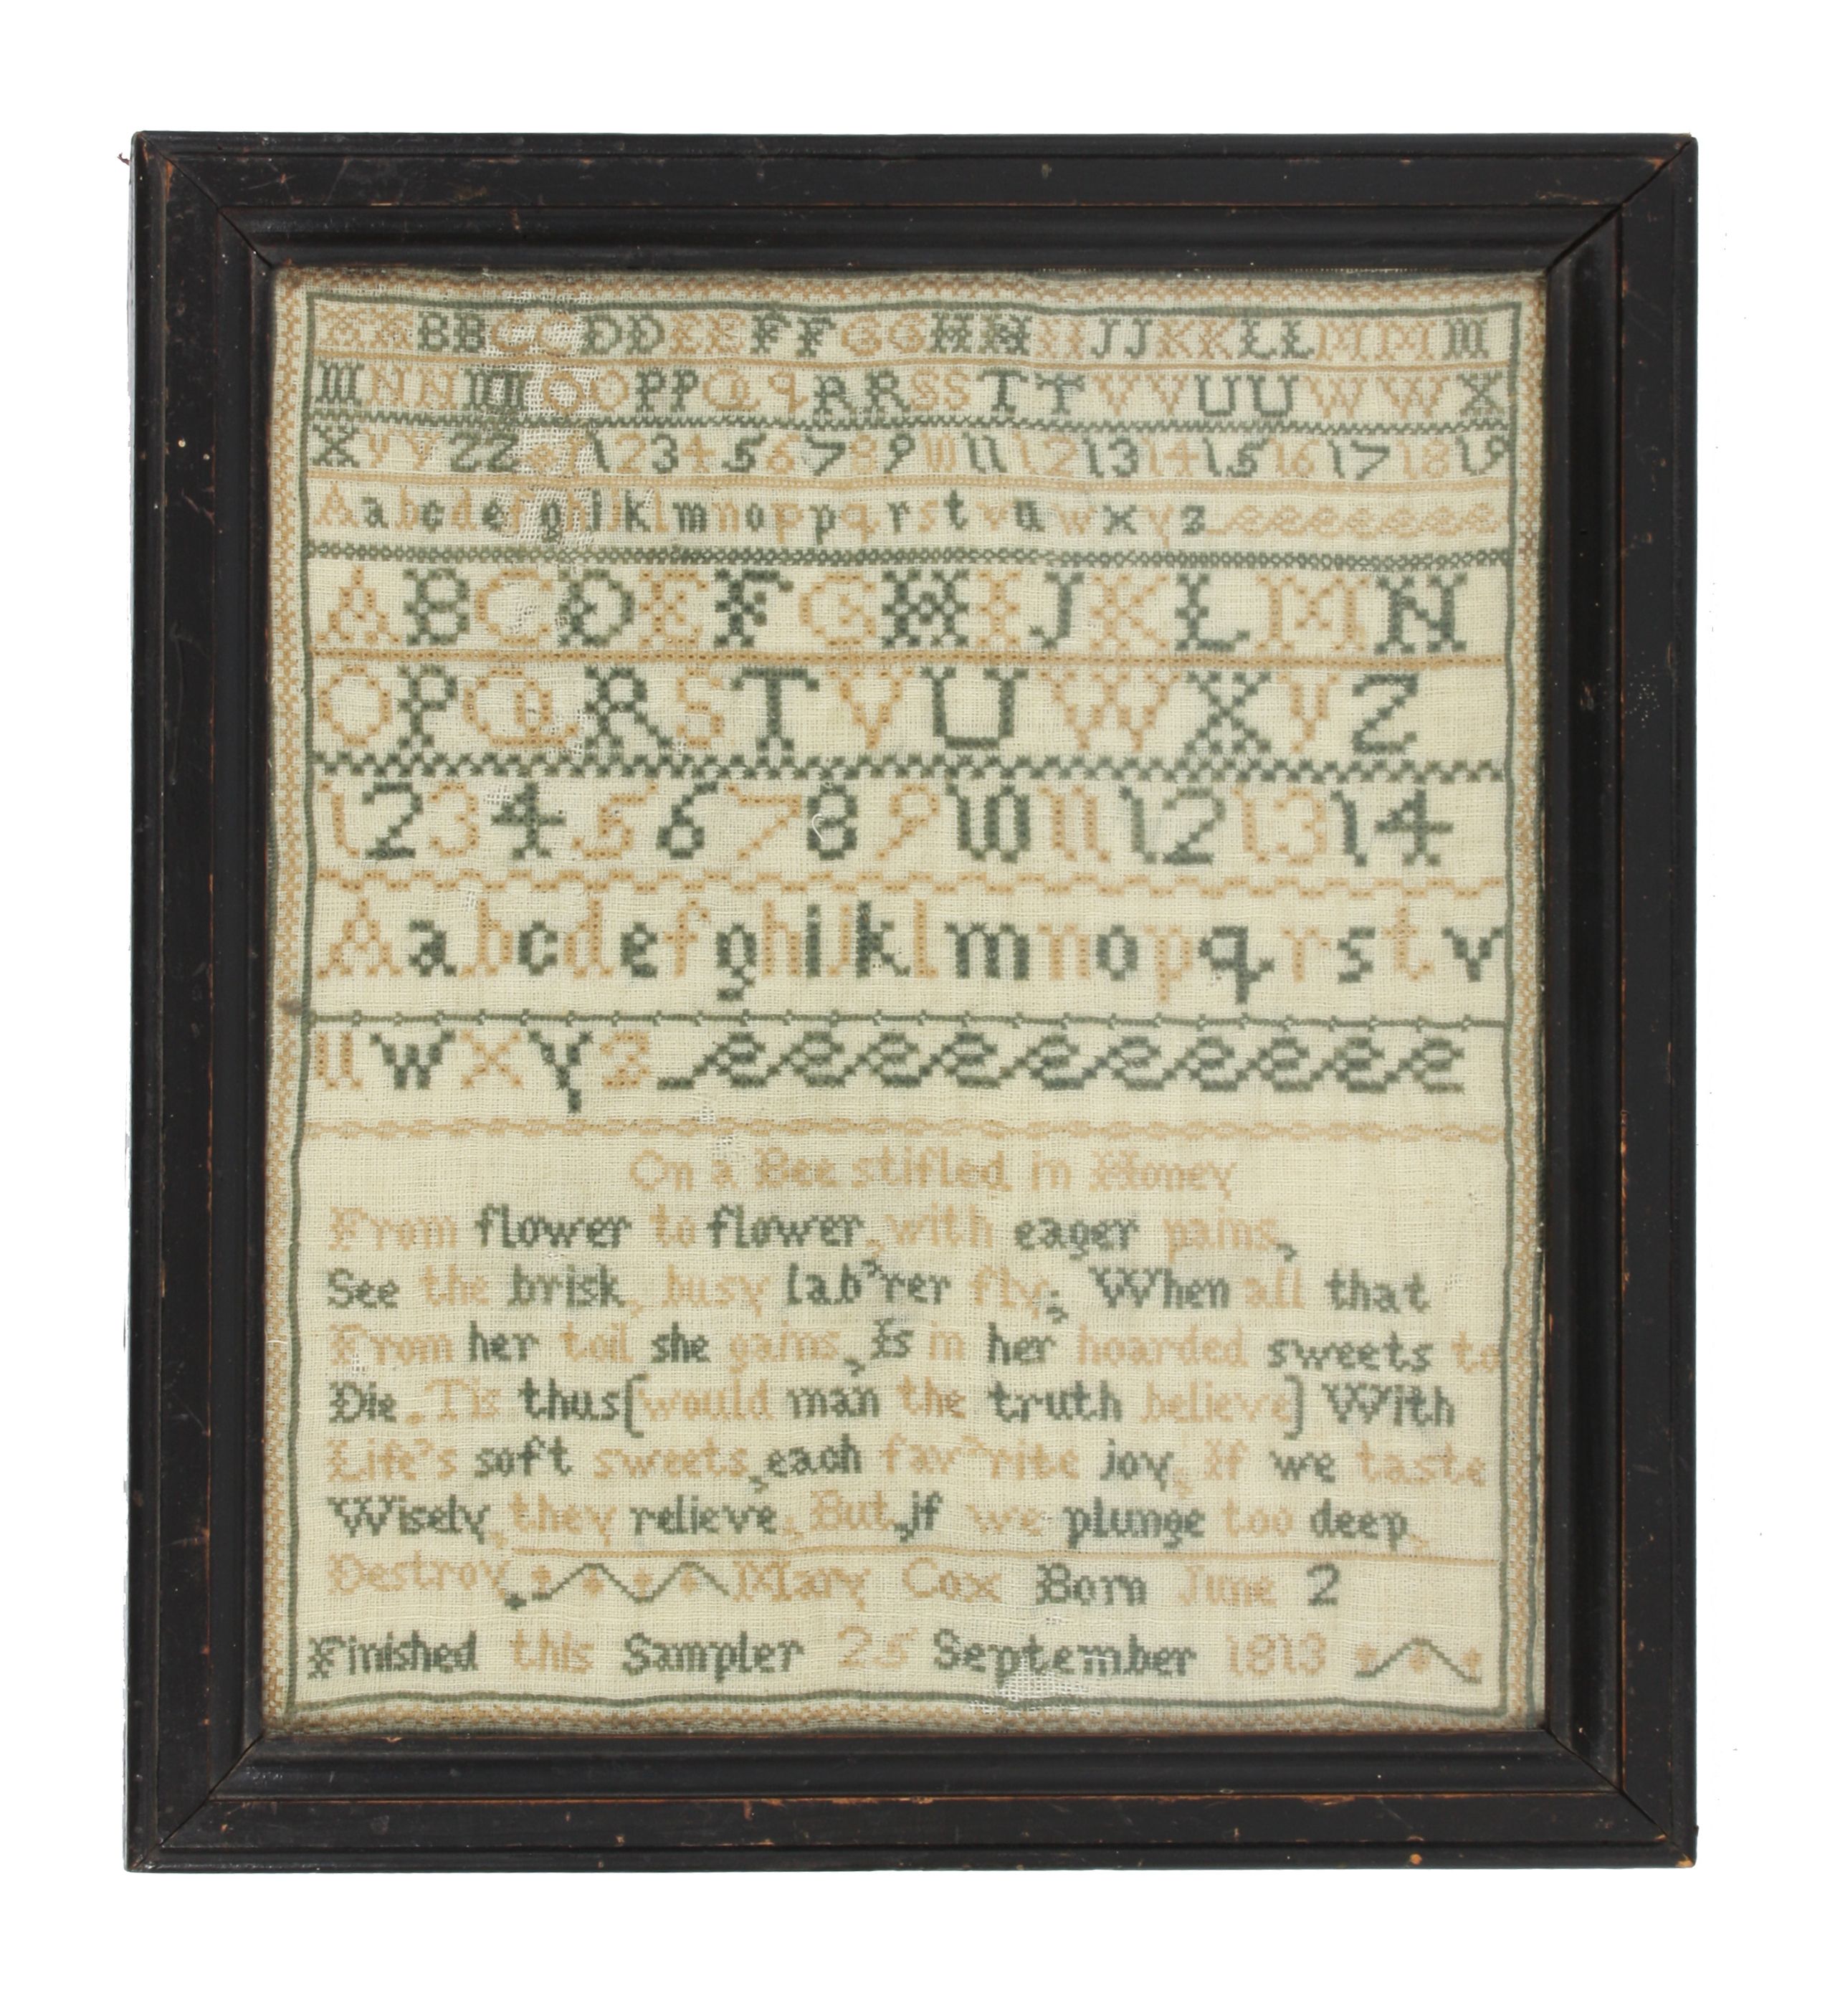 A A B B C C D D E E F F G G H H I I J J K K L L M M M
M N N N N O O P P Q q R R S S T T V V U U W W X
X y y Z Z 1 2 3 4 5 6 7 8 9 10 11 12 13 14 15 16 17 18 19
A a b c d e f g h i k l m n o p p q r s t v u w x y z
A B C D E F G H I J K L M N
O P Q R S T V U W X Y Z
1 2 3 4 5 6 7 8 9 10 11 12 13 14
A a b c d e f g h i j k l m n o p q r s t v
u w x y z
On a Bee stifled in Honey
From flower to flower, with eager pains,
See the brisk, busy lab'rer fly; When all that
From her toil she gains, Is in her hoarded sweets to
Die. Tis thus [would man the truth believe] With
Life's soft sweets, each fav'rite joy, If we taste
Wisely, they relieve; But, if we plunge too deep,
Destroy. Mary Cox Born June 2
Finished this Sampler 25 September 1813